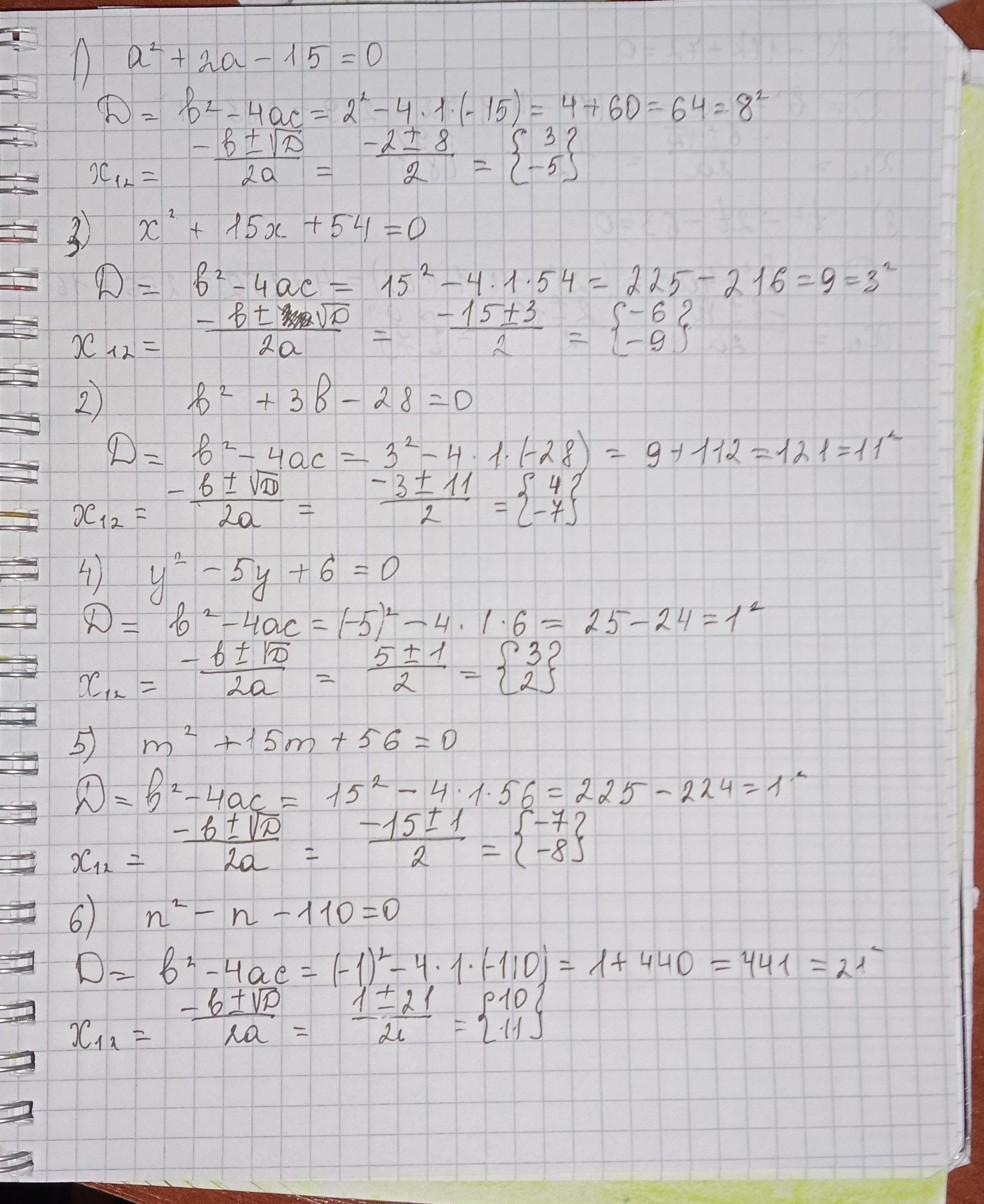 1) a² + 2a - 15 = 0
D = b² - 4ac = 2² - 4 · 1 · (-15) = 4 + 60 = 64 = 8²
x₁₂ = (-b ± √D)/2a = (-2 ± 8)/2 = {3 -5}
3) x² + 15x + 54 = 0
D = b² - 4ac = 15² - 4 · 1 · 54 = 225 - 216 = 9 = 3²
x₁₂ = (-b ± √D)/2a = (-15 ± 3)/2 = {-6 -9}
2) b² + 3b - 28 = 0
D = b² - 4ac = 3² - 4 · 1 · (-28) = 9 + 112 = 121 = 11²
x₁₂ = (-b ± √D)/2a = (-3 ± 11)/2 = {4 -7}
4) y² - 5y + 6 = 0
D = b² - 4ac = (-5)² - 4 · 1 · 6 = 25 - 24 = 1²
x₁₂ = (-b ± √D)/2a = (5 ± 1)/2 = {3 2}
5) m² + 15m + 56 = 0
D = b² - 4ac = 15² - 4 · 1 · 56 = 225 - 224 = 1²
x₁₂ = (-b ± √D)/2a = (-15 ± 1)/2 = {-7 -8}
6) n² - n - 110 = 0
D = b² - 4ac = (-1)² - 4 · 1 · (-110) = 1 + 440 = 441 = 21²
x₁₂ = (-b ± √D)/2a = (1 ± 21)/2 = {10 11}